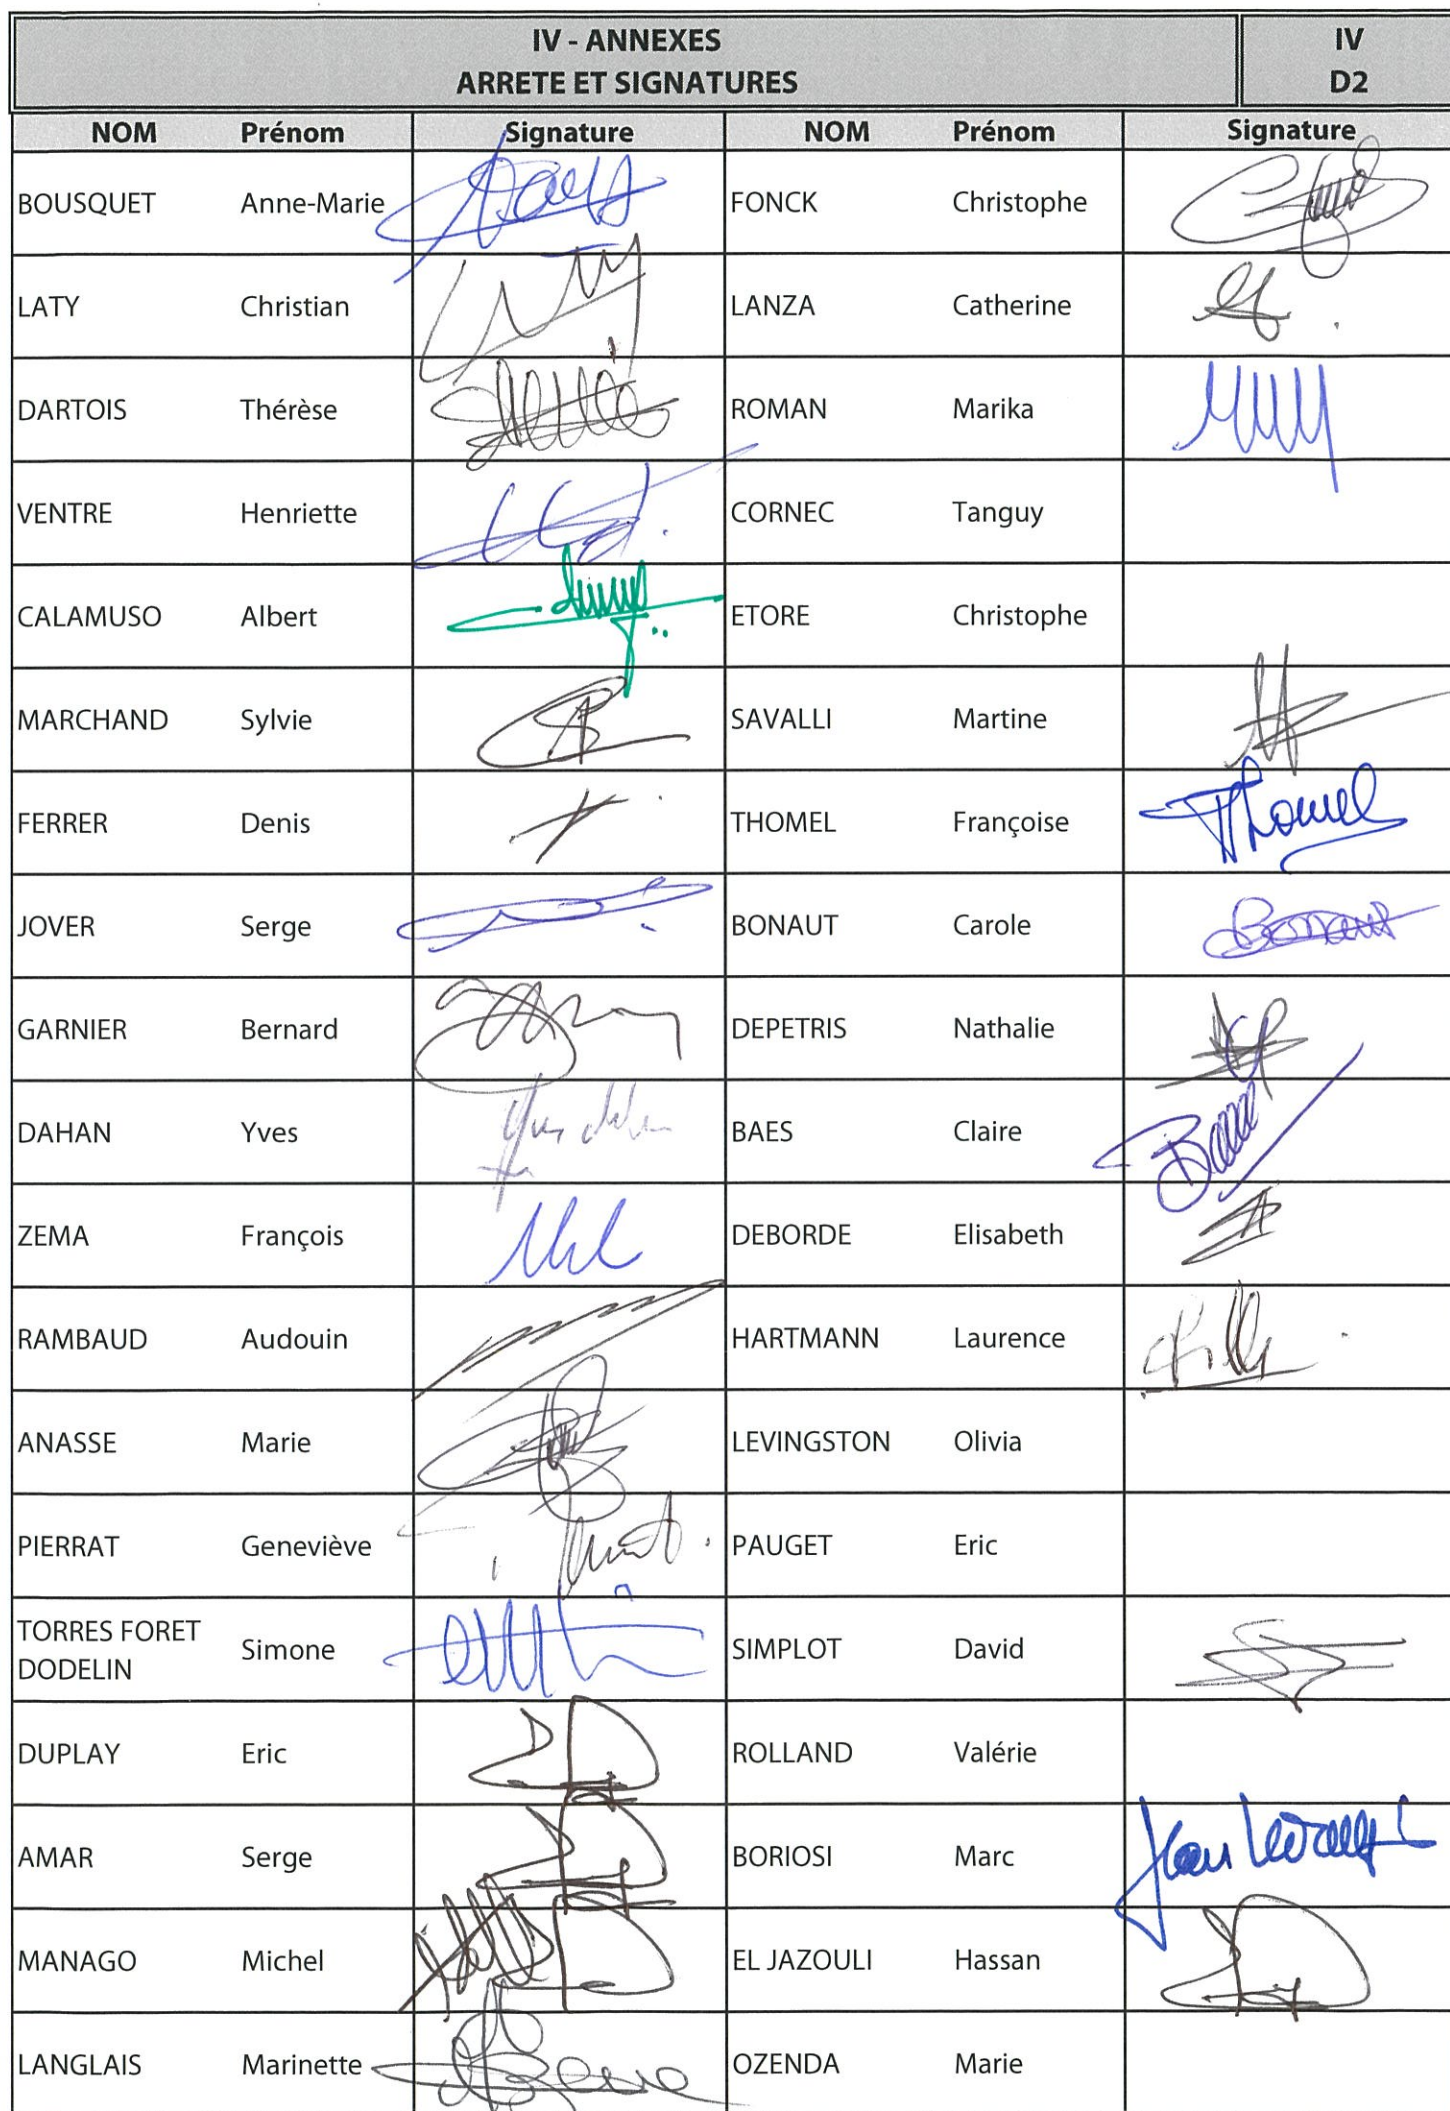 IV - ANNEXES
ARRETE ET SIGNATURES
IV
D2
NOM Prénom Signature NOM Prénom Signature
BOUSQUET Anne-Marie FONCK Christophe
LATY Christian LANZA Catherine
DARTOIS Thérèse ROMAN Marika
VENTRE Henriette CORNEC Tanguy
CALAMUSO Albert ETORE Christophe
MARCHAND Sylvie SAVALLI Martine
FERRER Denis THOMEL Françoise Thomel
JOVER Serge BONAUT Carole Bonaut
GARNIER Bernard DEPETRIS Nathalie
DAHAN Yves BAES Claire
ZEMA François DEBORDE Elisabeth
RAMBAUD Audouin HARTMANN Laurence
ANASSE Marie LEVINGSTON Olivia
PIERRAT Geneviève PAUGET Eric
TORRES FORET
DODELIN Simone SIMPLOT David
DUPLAY Eric ROLLAND Valérie
AMAR Serge BORIOSI Marc
MANAGO Michel EL JAZOULI Hassan
LANGLAIS Marinette OZENDA Marie